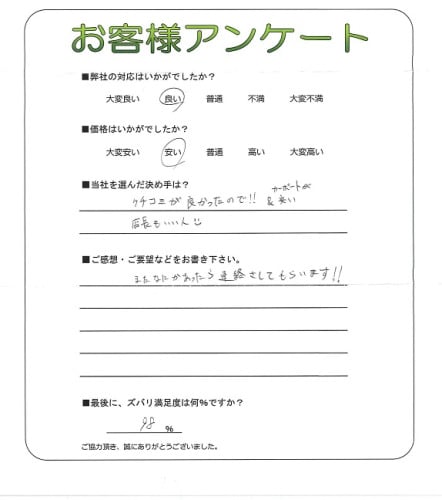 お客様アンケート
■弊社の対応はいかがでしたか?
大変良い 良い 普通 不満 大変不満
■価格はいかがでしたか?
大変安い 安い 普通 高い 大変高い
■当社を選んだ決め手は?
クチコミが良かったので!! カーポートが
&安い
店長もいい人
■ご感想・ご要望などをお書き下さい。
またなにかあったら連絡さしてもらいます!!
■最後に、ズバリ満足度は何%ですか?
98 %
ご協力頂き、誠にありがとうございました。